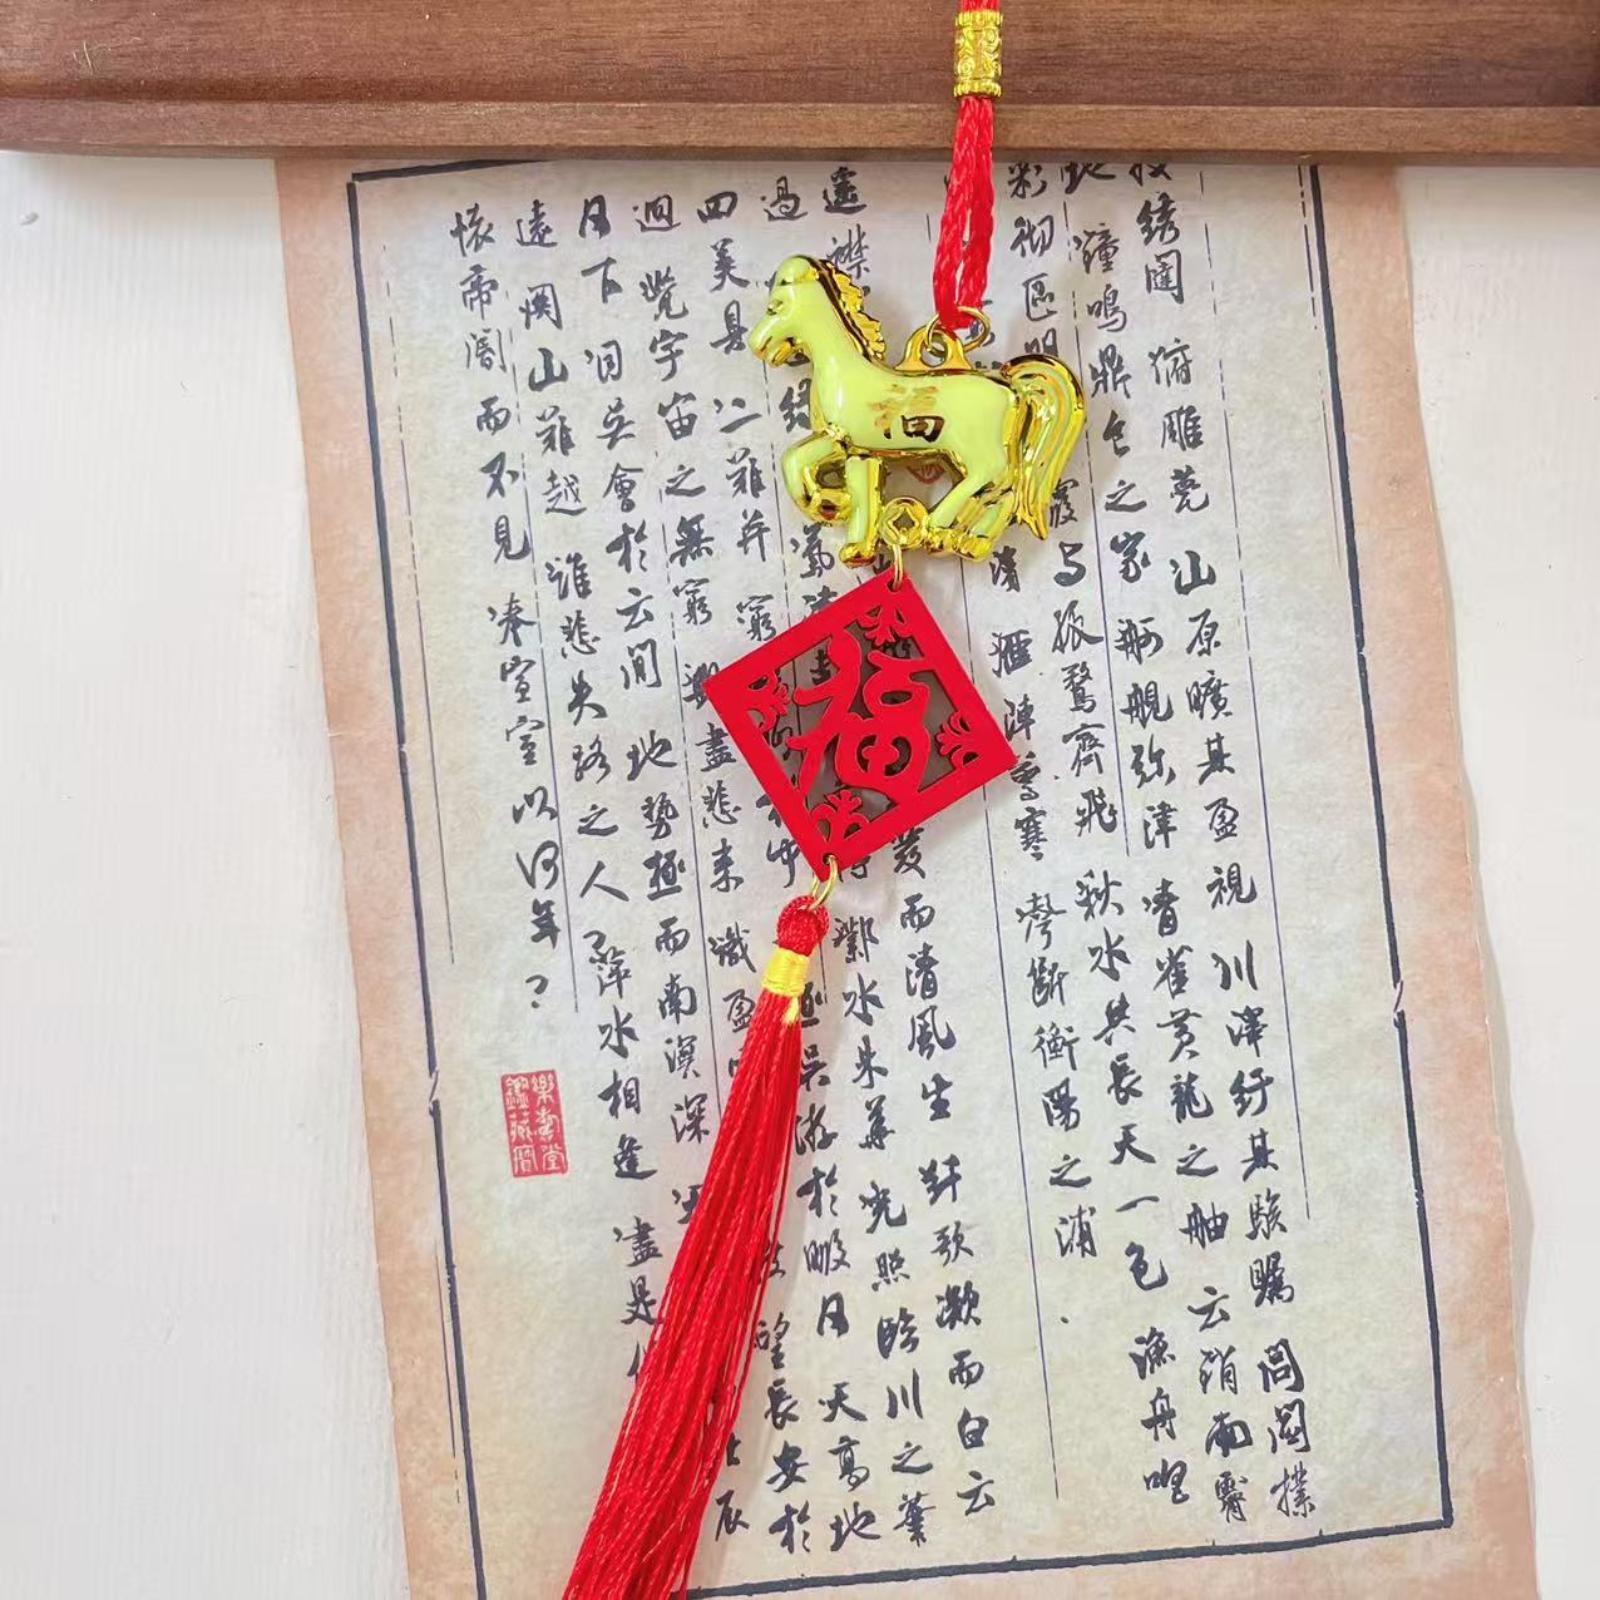 福
福
披绣闥 俯雕甍 山原曠其盈視 川澤紆其駭矚 閭閻撲
地 鐘鳴鼎食之家 舸艦弥津 青雀黄龍之舳 云销雨霽
彩彻區明 霞与孤鶩齊飛 秋水共長天一色 漁舟唱
濱 雁陣驚寒 聲斷衡陽之浦
遥襟 發而清風生 纤歌凝而白云
遏 绿 鄴水朱華 光照临川之筆
四美具 二難并 窮 極 娱游於暇日 天高地
迥 覺宇宙之無窮 興盡悲来 識盈 望長安於
日下 目吴會於云間 地势極而南溟深 天 北辰
遠 関山難越 誰悲失路之人 萍水相逢 盡是他
懷帝阍而不見 奉宣室以何年？
樂壽堂
鑑藏寶